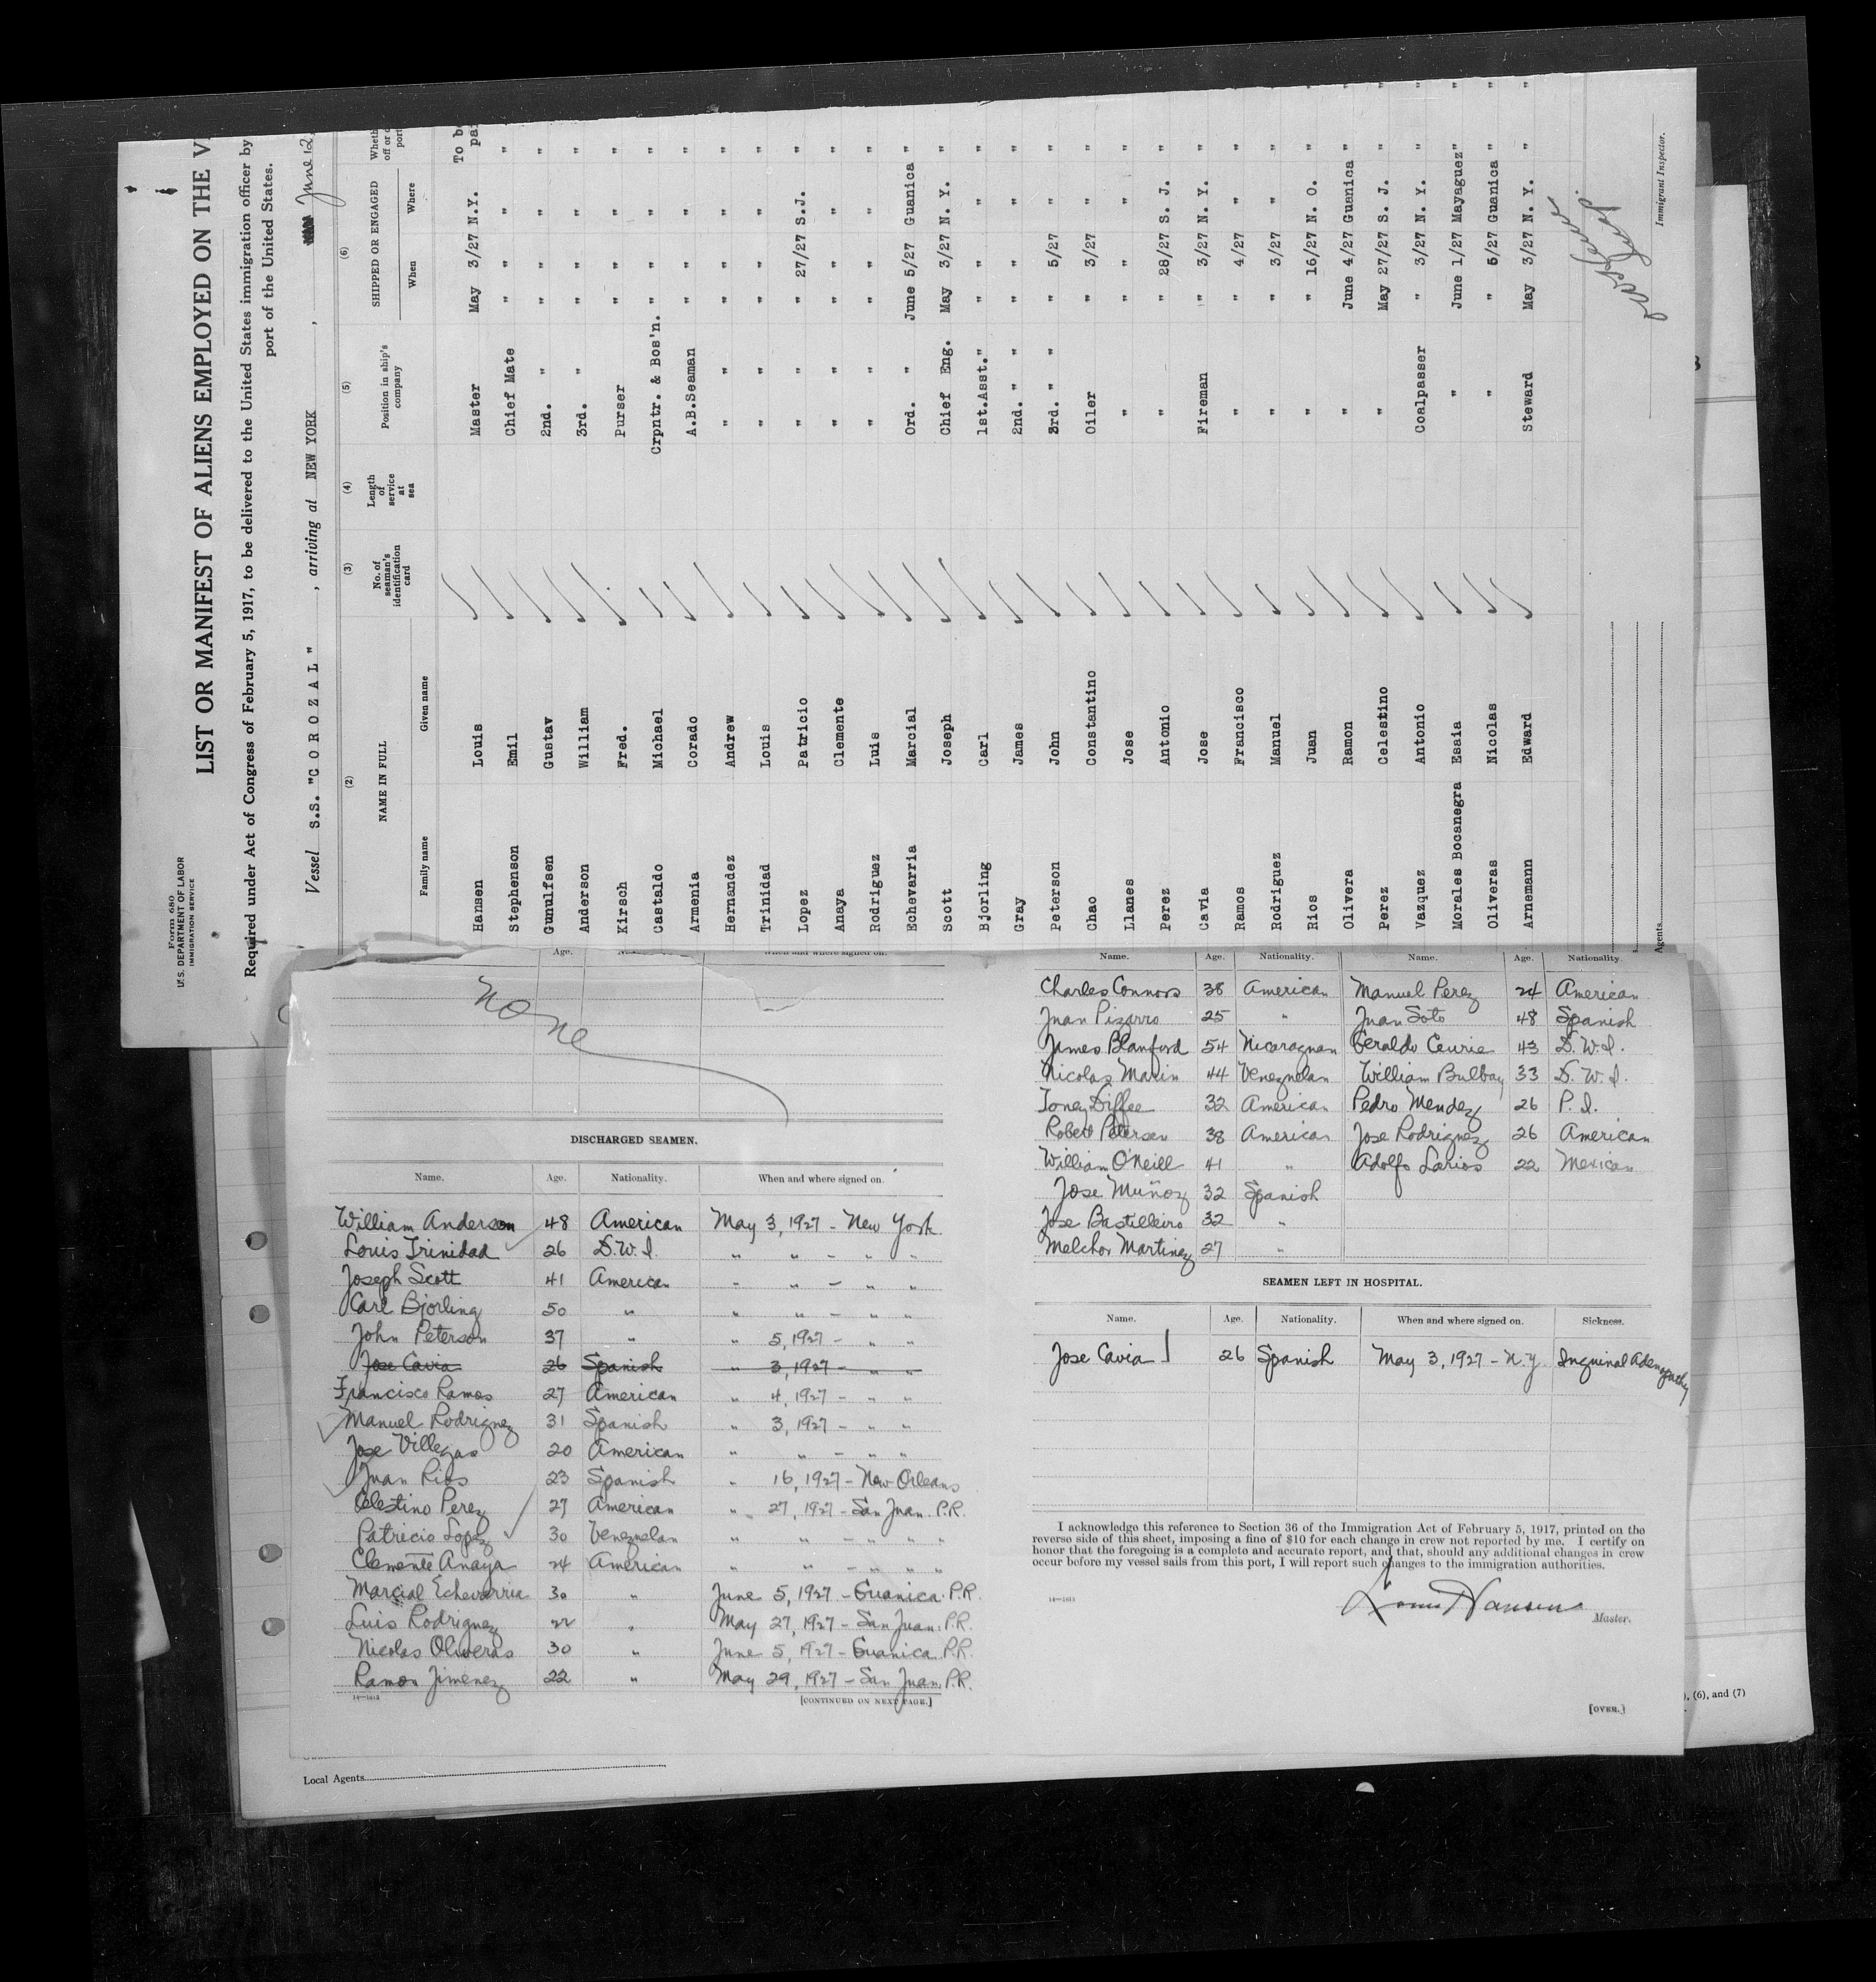 Form 680
U.S. DEPARTMENT OF LABOR
IMMIGRATION SERVICE
LIST OR MANIFEST OF ALIENS EMPLOYED ON THE V
Required under Act of Congress of February 5, 1917, to be delivered to the United States immigration officer by
port of the United States.
Vessel S.S. "C O R O Z A L", arriving at NEW YORK, June 12,
(2) (3) (4) (5) (6)
NAME IN FULL No. of seaman's identification card Length of service at sea Position in ship's company SHIPPED OR ENGAGED Wheth off or port
Family name Given name When Where
Hansen Louis Master May 3/27 N.Y. To be pai
Stephenson Emil Chief Mate " " " "
Gunulfsen Gustav 2nd. " " " " "
Anderson William 3rd. " " " " "
Kirsch Fred. Purser " " " "
Castaldo Michael Crpntr. & Bos'n. " " " "
Armenia Corado A.B.Seaman " " " "
Hernandez Andrew " " " " "
Trinidad Louis " " " " "
Lopez Patricio " " 27/27 S.J. "
Anaya Clemente " " " " "
Rodriguez Luis " " " " "
Echevarria Marcial Ord. " June 5/27 Guanica "
Scott Joseph Chief Eng. May 3/27 N. Y. "
Bjorling Carl 1st.Asst." " " " "
Gray James 2nd. " " " " " "
Peterson John 3rd. " " " 5/27 " "
Chao Constantino Oiler " 3/27 " "
Llanes Jose " " " " "
Perez Antonio " " 28/27 S. J. "
Cavia Jose Fireman " 3/27 N. Y. "
Ramos Francisco " " 4/27 " "
Rodriguez Manuel " " 3/27 " "
Rios Juan " " 16/27 N. O. "
Olivera Ramon " June 4/27 Guanica "
Perez Celestino " May 27/27 S. J. "
Vazquez Antonio Coalpasser " 3/27 N. Y. "
Morales Bocanegra Esaia " June 1/27 Mayaguez" "
Oliveras Nicolas " " 5/27 Guanica "
Arnemann Edward Steward May 3/27 N. Y. "
Immigrant Inspector.
Agents
Age. When and where signed on.
None
DISCHARGED SEAMEN.
Name. Age. Nationality. When and where signed on.
William Anderson 48 American May 3, 1927 - New York
Louis Trinidad 26 D.W.I. " " - " "
Joseph Scott 41 American " " - " "
Carl Bjorling 50 " " " - " "
John Peterson 37 " " 5, 1927 - " "
Jose Cavia 26 Spanish " 3, 1927 - " "
Francisco Ramos 27 American " 4, 1927 - " "
Manuel Rodriguez 31 Spanish " 3, 1927 - " "
Jose Villegas 20 American " " - " "
Juan Rios 23 Spanish " 16, 1927 - New Orleans
Celestino Perez 27 American " 27, 1927 - San Juan P.R.
Patricio Lopez 30 Venezuelan " " - " "
Clemente Anaya 24 American " " - " " "
Marcial Echevarria 30 " June 5, 1927 - Guanica P.R.
Luis Rodriguez 22 " May 27, 1927 - San Juan P.R.
Nicolas Oliveras 30 " June 5, 1927 - Guanica P.R.
Ramon Jimenez 22 " May 29, 1927 - San Juan P.R.
14—1613
[CONTINUED ON NEXT PAGE.]
Name. Age. Nationality. Name. Age. Nationality.
Charles Connors 38 American Manuel Perez 24 American
Juan Pizarro 25 " Juan Soto 48 Spanish
James Blanford 54 Nicaraguan Geraldo Ceurie 43 D.W.I.
Nicolas Marin 44 Venezuelan William Bulbay 33 D.W.I.
Toney Diffee 32 American Pedro Mendez 26 P.I.
Robert Petersen 38 American Jose Rodriguez 26 American
William O'Neill 41 " Adolfo Larios 22 Mexican
Jose Muñoz 32 Spanish
Jose Bastilleiro 32 "
Melchor Martinez 27 "
SEAMEN LEFT IN HOSPITAL.
Name. Age. Nationality. When and where signed on. Sickness.
Jose Cavia 26 Spanish May 3, 1927 - N.Y. Inguinal Adenopathy
I acknowledge this reference to Section 36 of the Immigration Act of February 5, 1917, printed on the
reverse side of this sheet, imposing a fine of $10 for each change in crew not reported by me. I certify on
honor that the foregoing is a complete and accurate report, and that, should any additional changes in crew
occur before my vessel sails from this port, I will report such changes to the immigration authorities.
Louis Hansen
Master.
14—1613
[OVER.]
), (6), and (7)
Local Agents